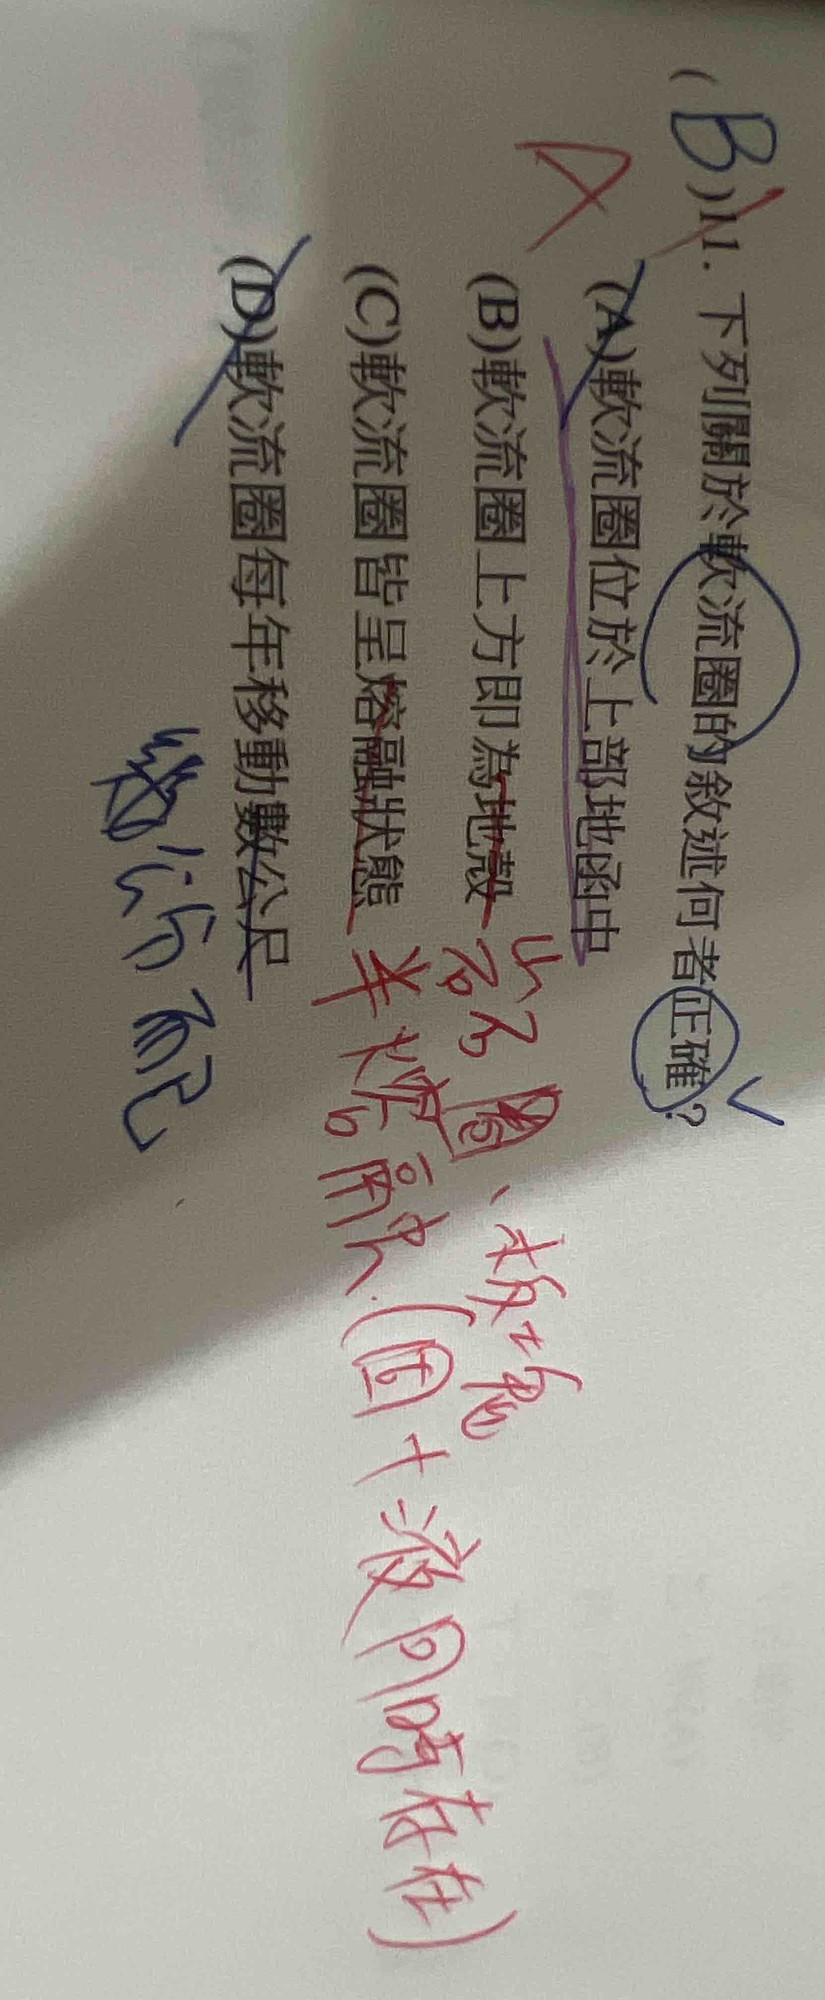 (B)11. 下列關於軟流圈的敘述何者正確?
A
(A)軟流圈位於上部地函中
(B)軟流圈上方即為地殼 岩石圈、板塊
(C)軟流圈皆呈熔融狀態 半熔融(固+液同時存在)
(D)軟流圈每年移動數公尺